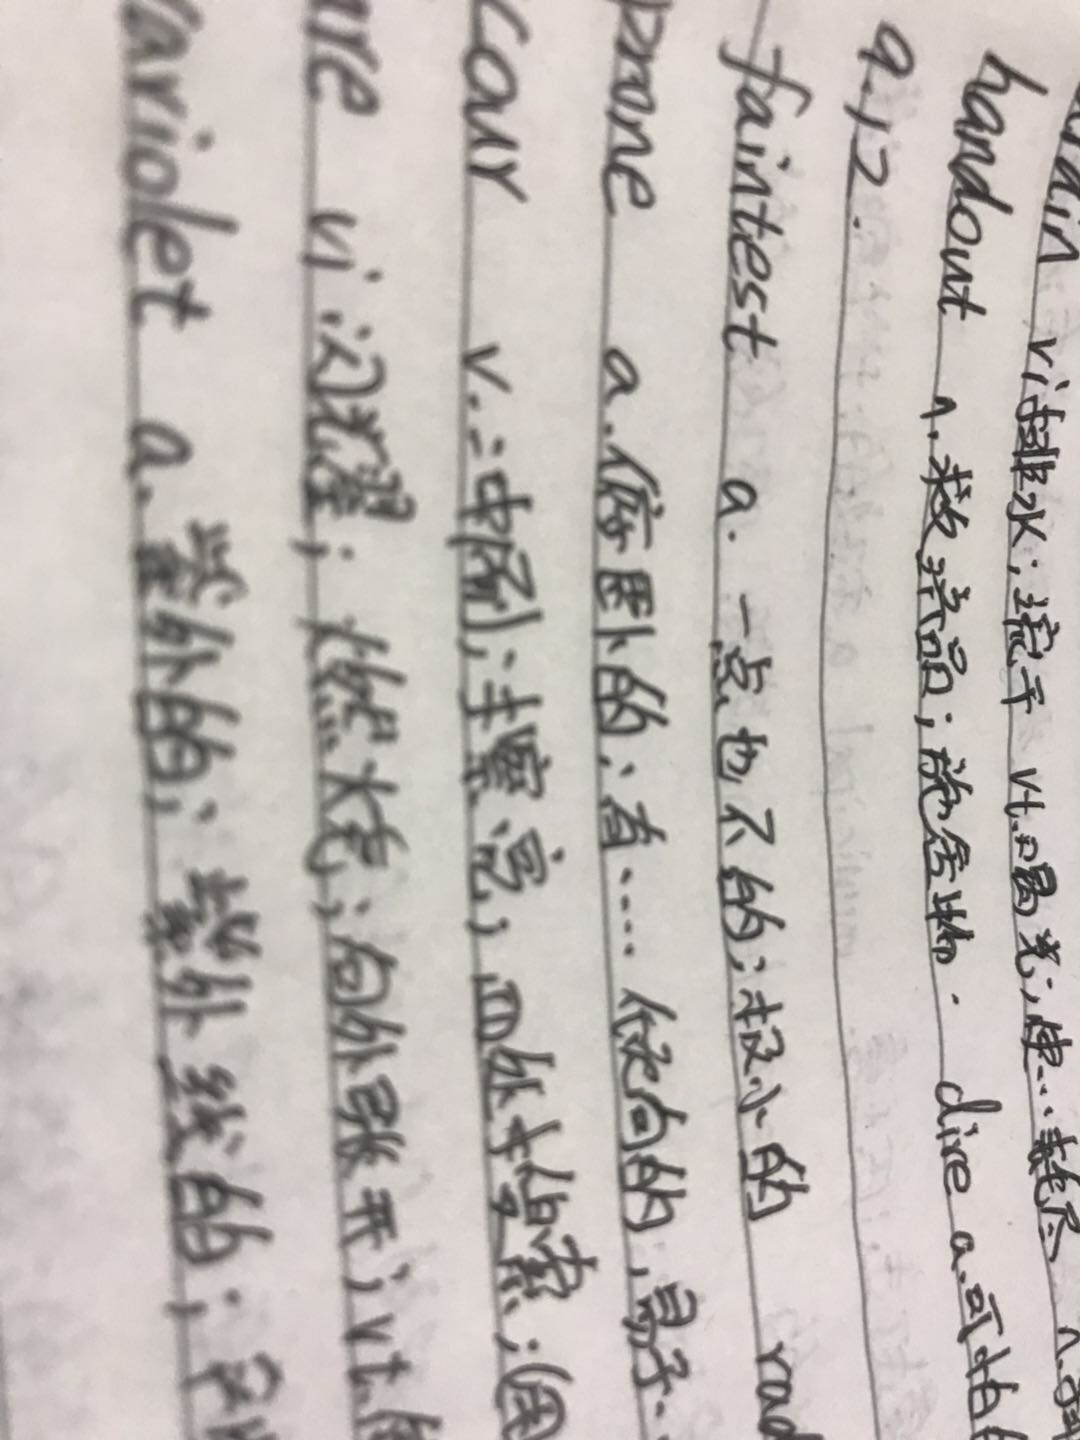 vi.排水；流干 vt.喝光；使…耗尽 n.
handout n.救济品；施舍物. dire a.可怕
9.12.
faintest a.一点也不的；极小的
prone a.俯卧的；有……倾向的，易于…
v.冲刷；擦亮；四处搜索；(因
vi.闪耀；燃烧；向外张开；vt.使
a.紫外的；紫外线的；